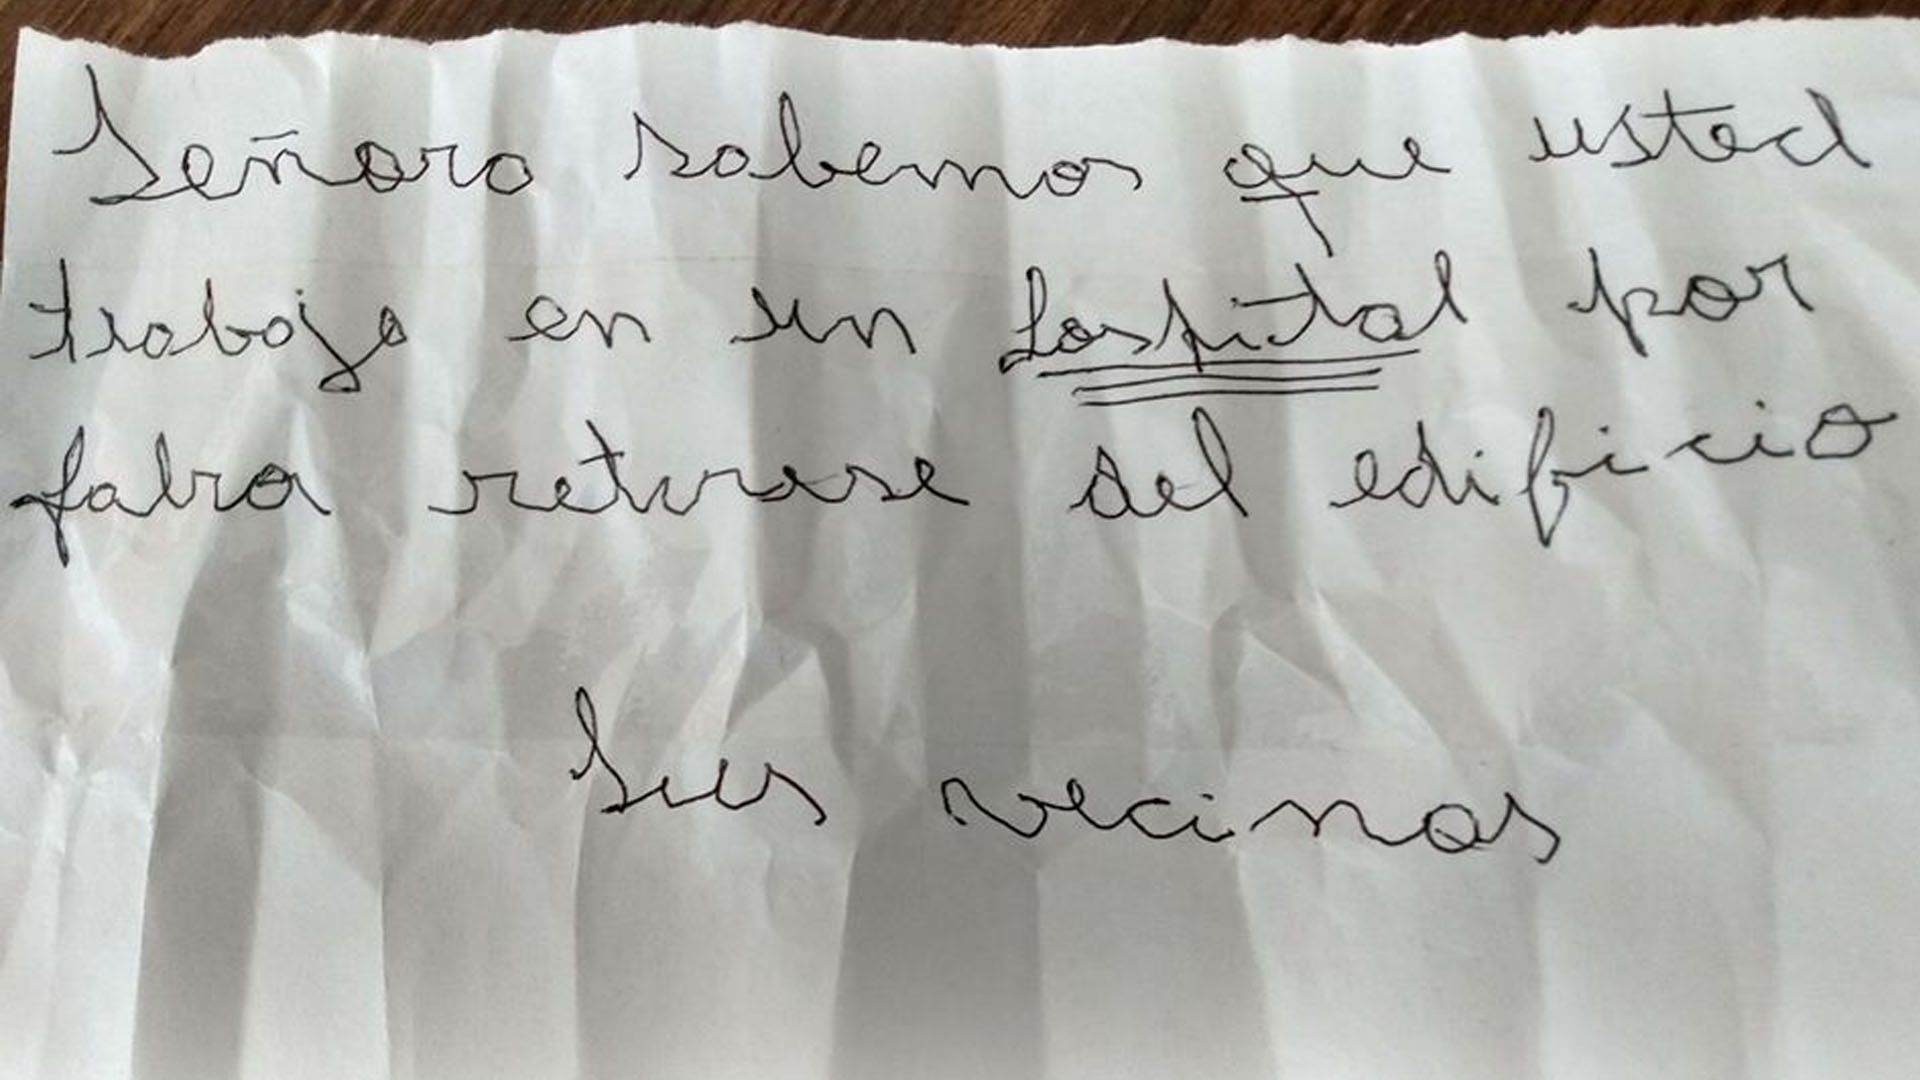 Señora sabemos que usted
trabaja en un hospital por
fabra retirese del edificio
Sus vecinos